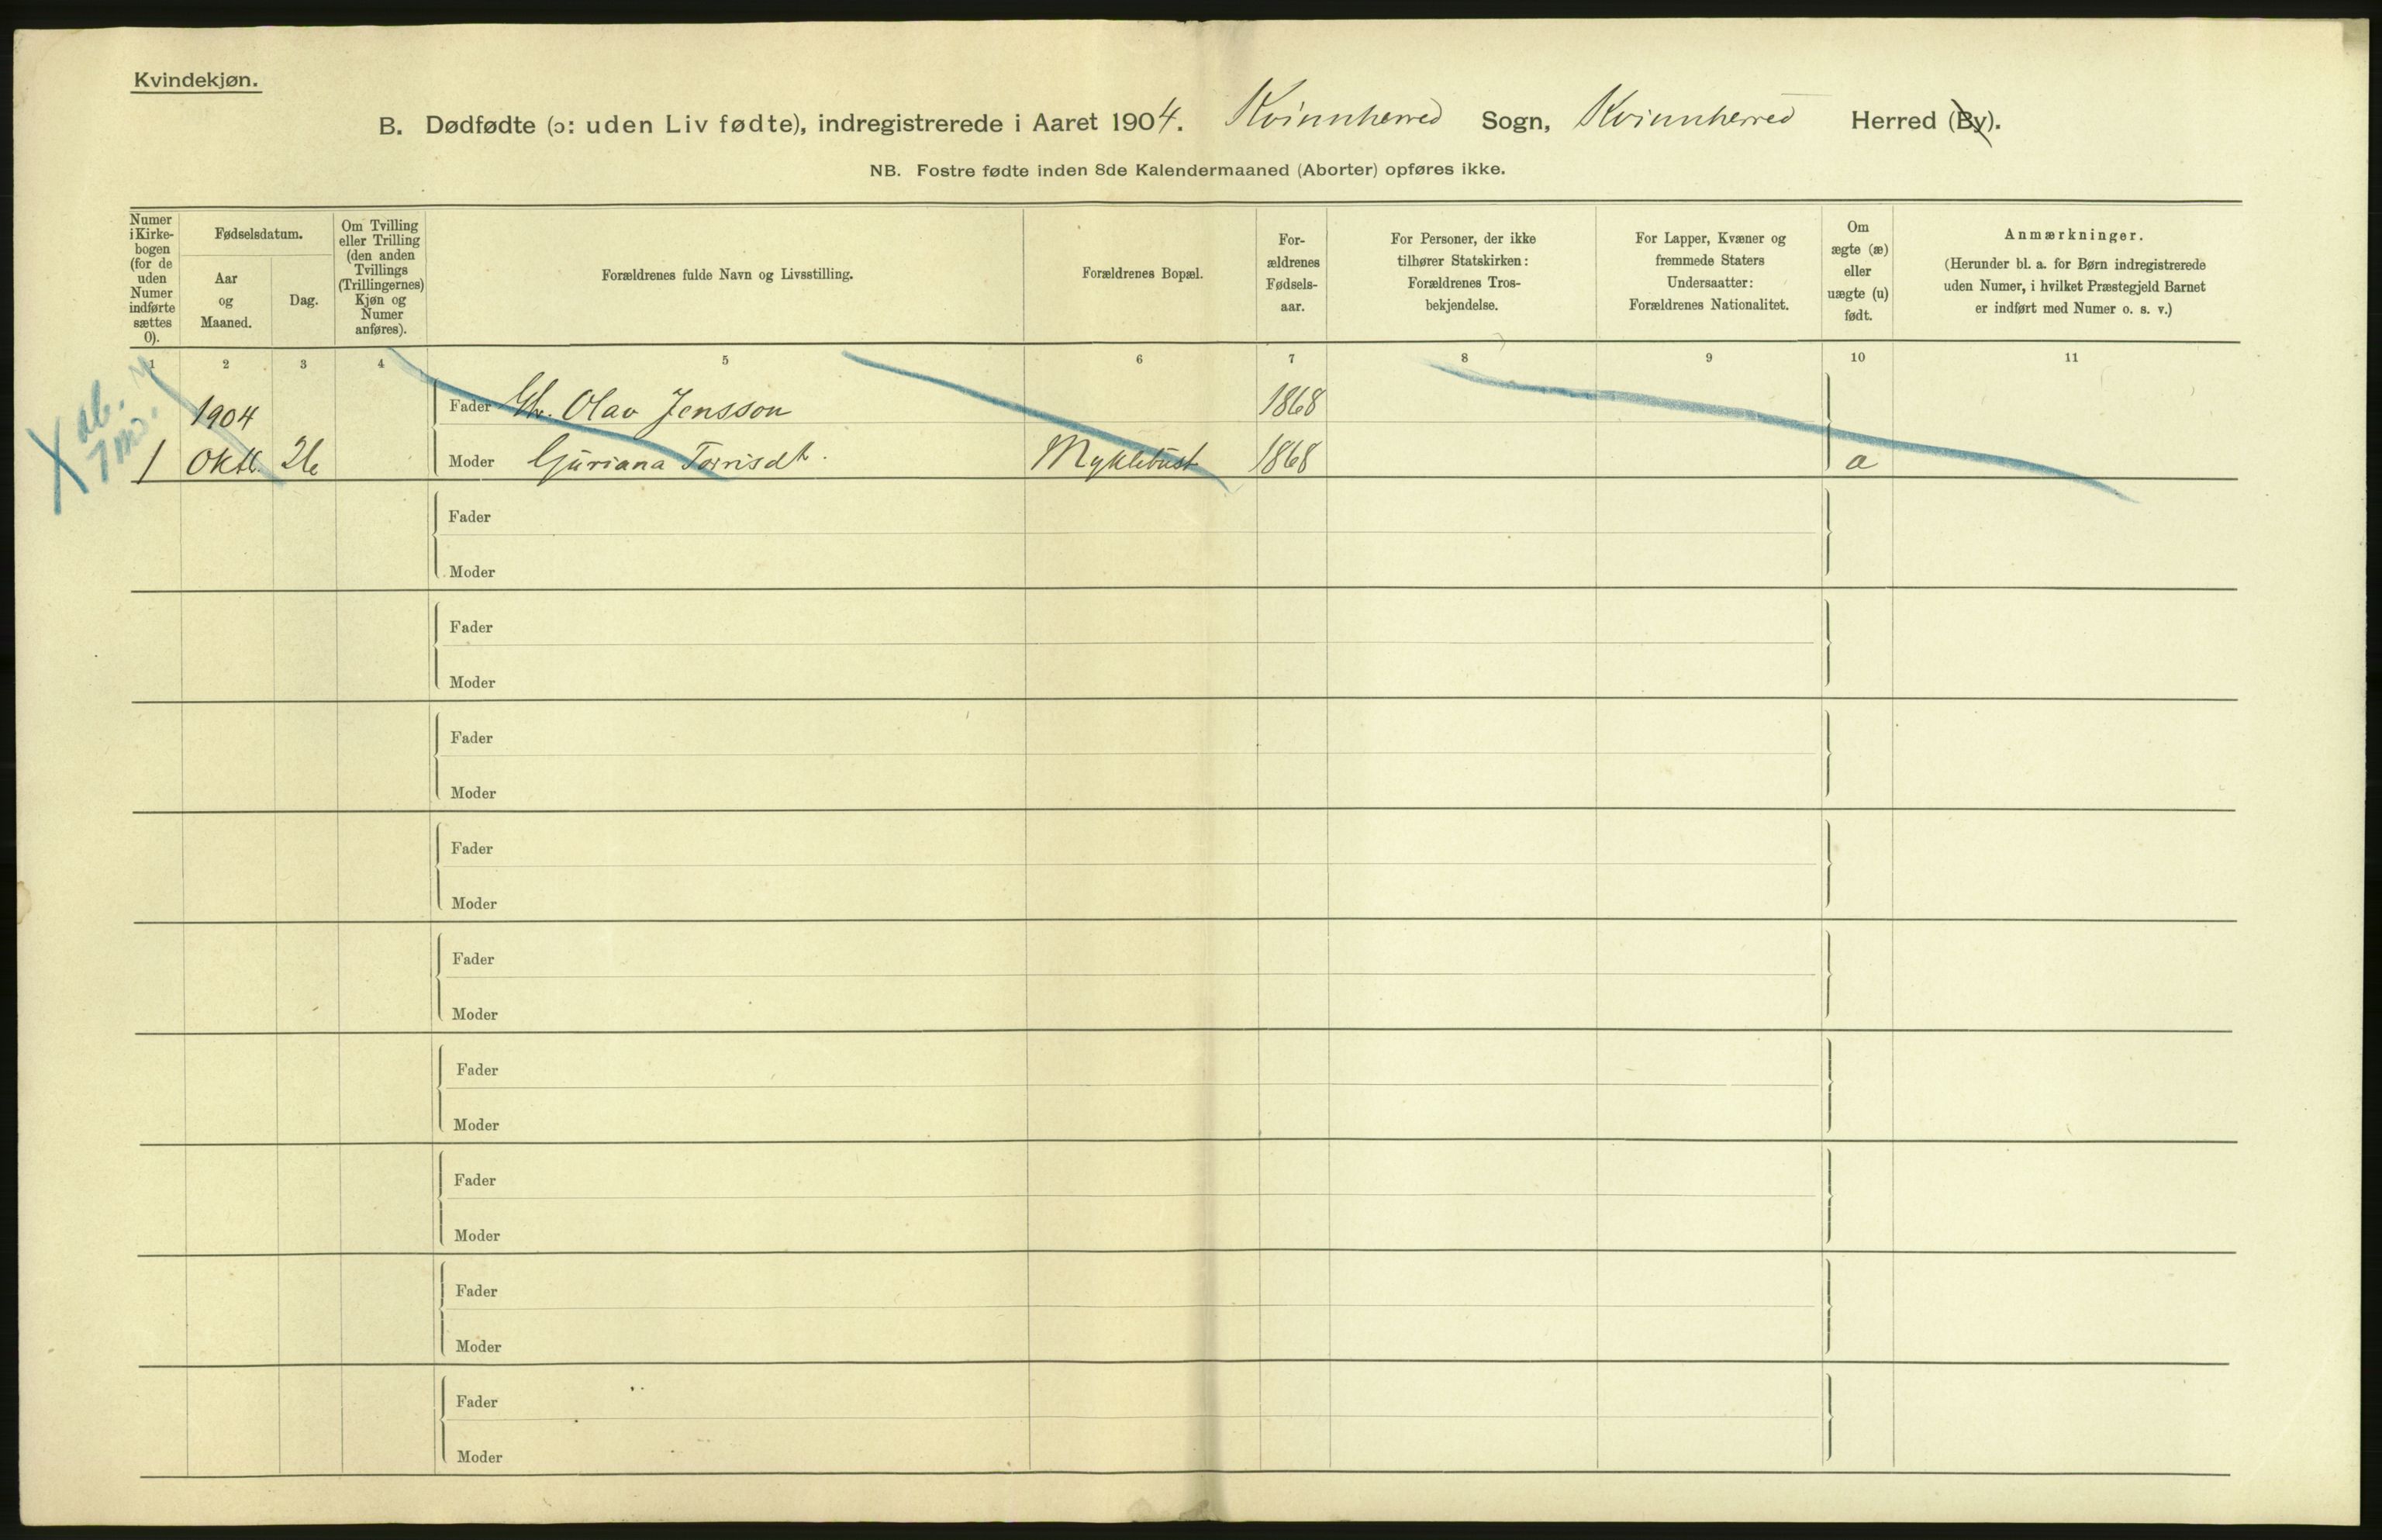 Kvindekjøn.
B. Dødfødte (ɔ: uden Liv fødte), indregistrerede i Aaret 1904. Kvinnherred Sogn, Kvinnherred Herred (By).
NB. Fostre fødte inden 8de Kalendermaaned (Aborter) opføres ikke.
Numer
i Kirke-
bogen
(for de
uden
Numer
indførte
sættes
0).
Fødselsdatum.
Aar
og
Maaned.
Dag.
Om Tvilling
eller Trilling
(den anden
Tvillings
(Trillingernes)
Kjøn og
Numer
anføres).
Forældrenes fulde Navn og Livsstilling.
Forældrenes Bopæl.
For-
ældrenes
Fødsels-
aar.
For Personer, der ikke
tilhører Statskirken:
Forældrenes Tros-
bekjendelse.
For Lapper, Kvæner og
fremmede Staters
Undersaatter:
Forældrenes Nationalitet.
Om
ægte (æ)
eller
uægte (u)
født.
Anmærkninger.
(Herunder bl. a. for Børn indregistrerede
uden Numer, i hvilket Præstegjeld Barnet
er indført med Numer o. s. v.)
1 2 3 4 5 6 7 8 9 10 11
X ab.
7 md.
1904
Fader Olav Jensson 1868
1 Oktb. 26 Moder Guriana Torrisdt. Myklebust 1868 æ
Fader
Moder
Fader
Moder
Fader
Moder
Fader
Moder
Fader
Moder
Fader
Moder
Fader
Moder
Fader
Moder
Fader
Moder